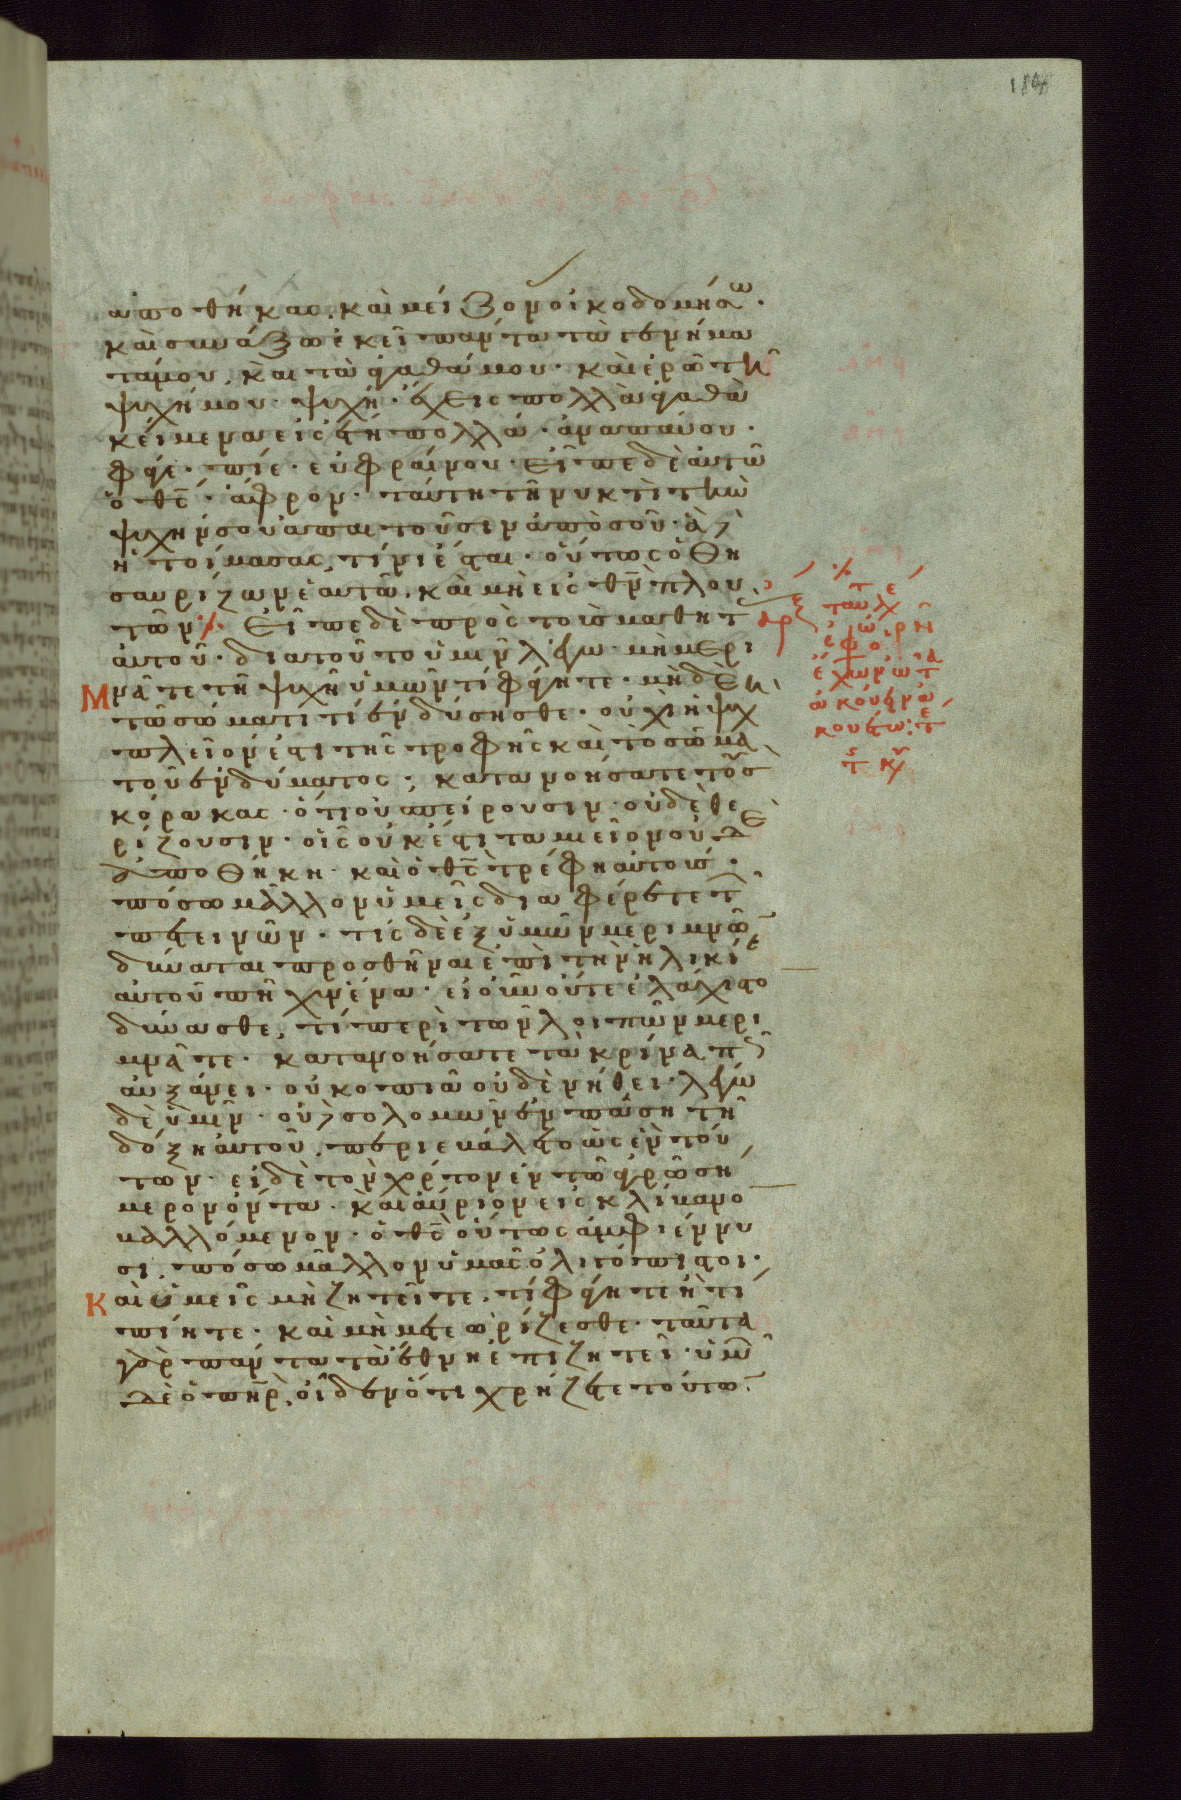 ἀποθήκας, καὶ μείζονας οἰκοδομήσω·
καὶ συνάξω ἐκεῖ πάντα τὰ γενήμα
τά μου, καὶ τὰ ἀγαθά μου· καὶ ἐρῶ τῆ
ψυχῆ μου· ψυχή· ἔχεις πολλὰ ἀγαθὰ
κείμενα εἰς ἔτη πολλά· ἀναπάυου·
φάγε· πίε· εὐφραίνου· Εἶπε δὲ αὐτῶ
ὁ θς· ἄφρον· ταύτη τῆ νυκτὶ τὴν
ψυχήν σου ἀπαιτοῦσιν ἀπὸ σοῦ· ἃ δὲ
ἡτοίμασας, τίνι ἔσται· οὕτως ὁ θη
σαυρίζων ἑαυτῶ, καὶ μὴ εἰς θν πλου
τῶν· Εἶπε δὲ πρὸς τοὺς μαθητ
αὐτοῦ· διατοῦτο ὑμῖν λέγω· μὴ μερι
μνᾶτε τῆ ψυχῆ ὑμῶν τί φάγητε· μηδὲ
τῶ σώματι τί ἐνδύσησθε· οὐχὶ ἡ ψυχ
πλεῖον ἐστι τῆς τροφῆς καὶ τὸ σῶμα
τοῦ ἐνδύματος; κατανοήσατε τοὺς
κόρακας· ὅτι οὐ σπείρουσιν· οὐδὲ θε
ρίζουσιν· οἷς οὐκ ἔστι ταμεῖον οὐδὲ
ἀποθήκη· καὶ ὁ θς τρέφη αὐτούς·
πόσω μᾶλλον ὑμεῖς διαφέρετε τ
πετεινῶν· τίς δὲ ἐξ ὑμῶν μεριμνῶν
δύναται προσθῆναι ἐπὶ τὴν ἡλικί
αὐτοῦ πῆχυν ἕνα· εἰ οὖν οὔτε ἐλάχιστο
δύνασθε, τί περὶ τῶν λοιπῶν μερι
μνᾶτε· κατανοήσατε τὰ κρίνα πῶς
αὐξάνει· οὐ κοπιᾶ οὐδὲ νήθει· λέγω
δὲ ὑμῖν· οὐδὲ σολομὼν ἐν πάση τῆ
δόξη αὐτοῦ, περιεβάλετο ὡς ἓν τού
των· εἰ δὲ τὸν χόρτον ἐν τῶ ἀγρῶ ση
μερον ὄντα· καὶ αὔριον εἰς κλίβανο
βαλλόμενον· ὁ θς οὕτως ἀμφιέννυ
σι, πόσω μᾶλλον ὑμᾶς ὀλιγόπιστοι·
Καὶ ὑμεῖς μὴ ζητεῖτε, τί φάγητε ἢ τί
πίητε· καὶ μὴ μετεωρίζεσθε· ταῦτα
γὰρ πάντα τὰ ἔθνη ἐπιζητεῖ· ὑμῶν
δὲ ὁ πηρ, οἶδεν ὅτι χρήζετε τούτων